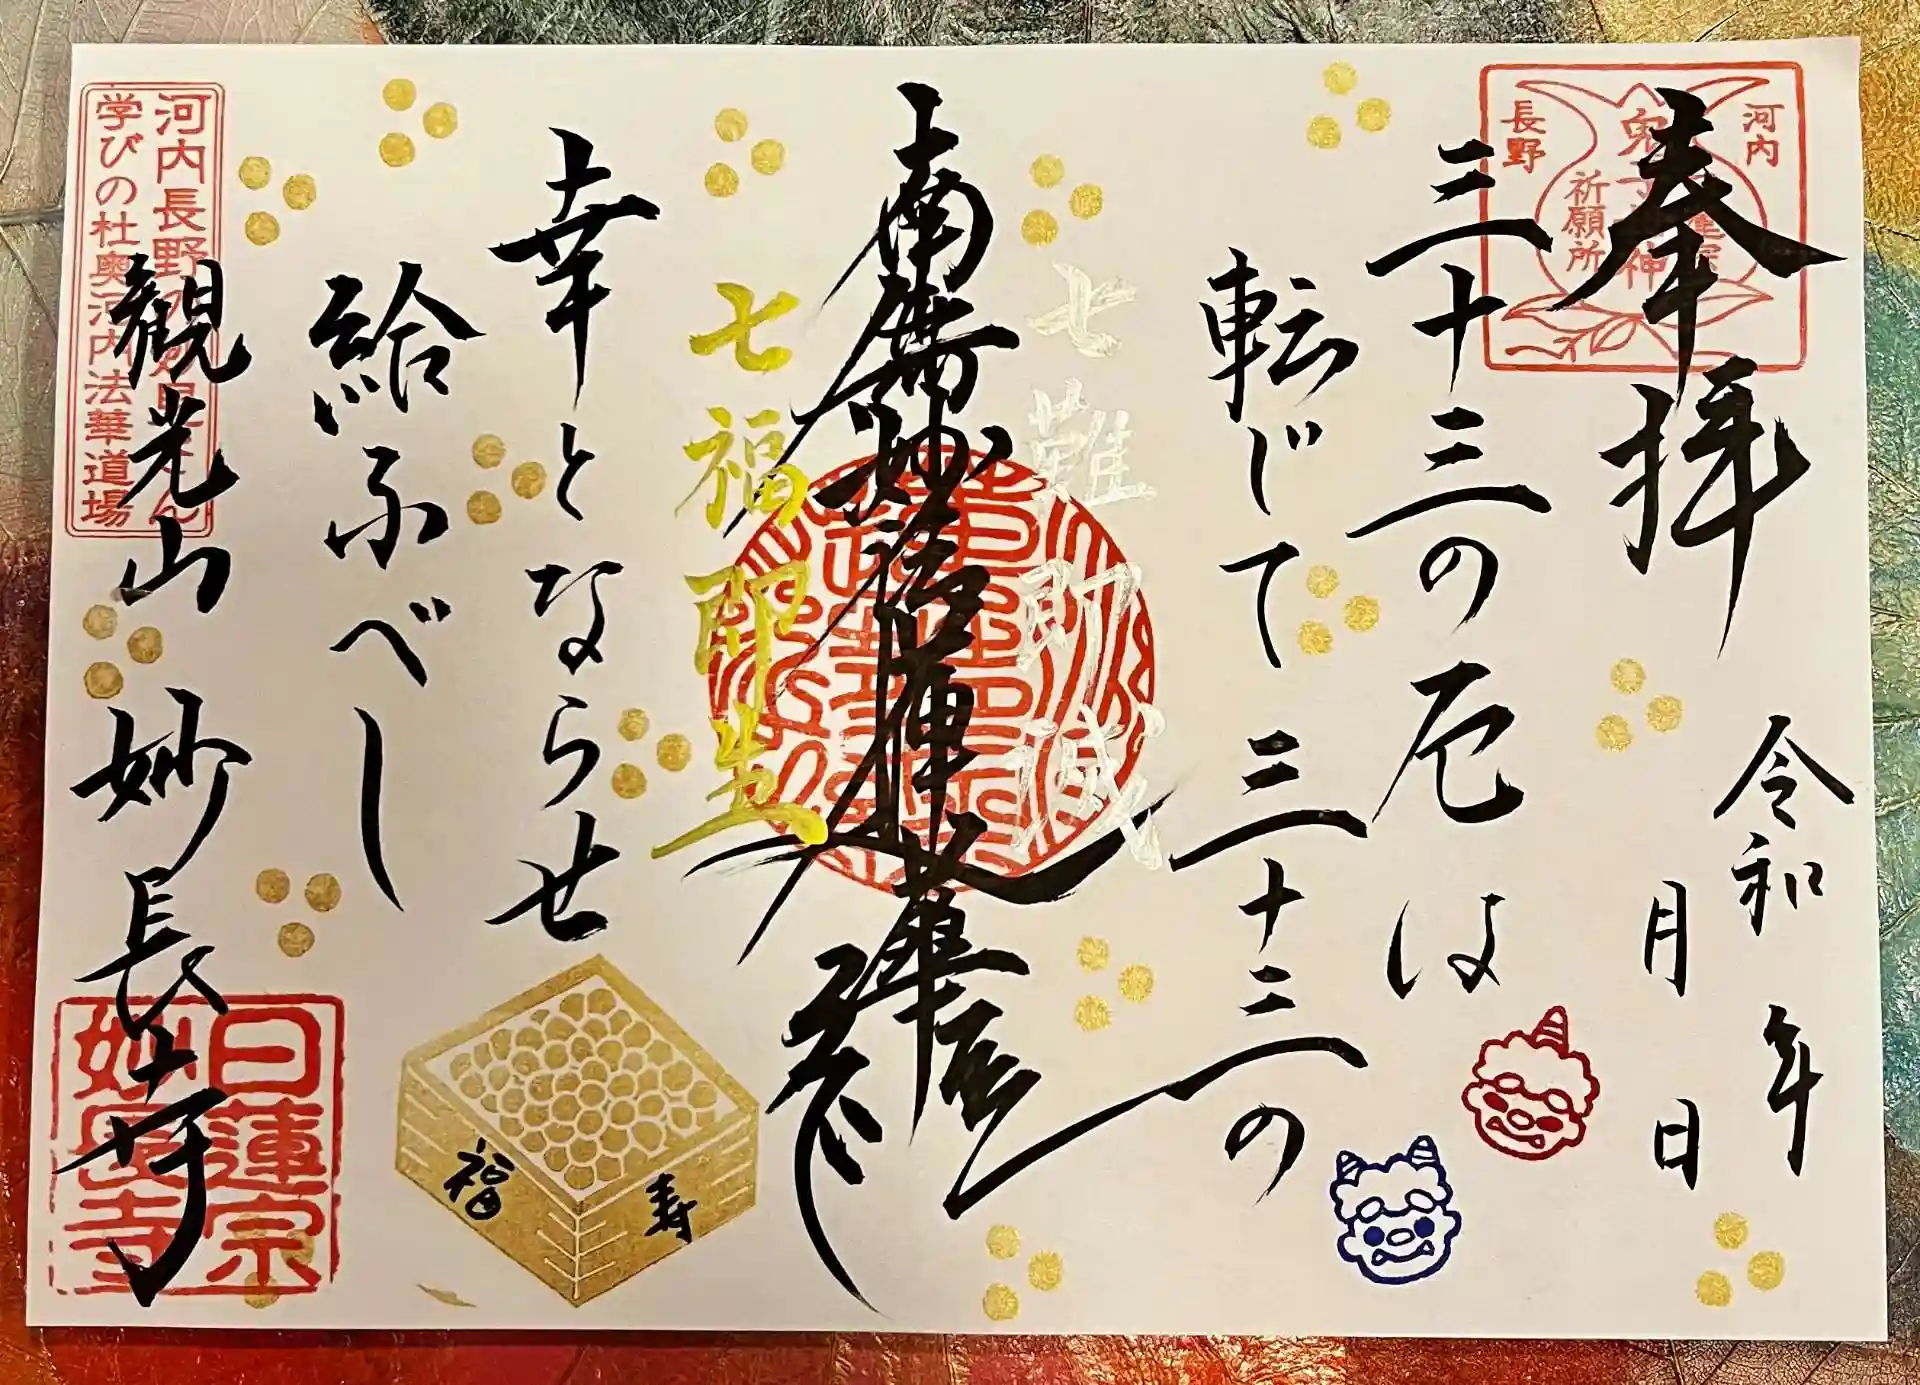 奉拝
令和 年
月 日
河内
長野
祈願所
三十三の厄は
転じて三十三の
七難即滅
南無妙法蓮華経
七福即生
幸とならせ
給ふべし
福
寿
観光山 妙長寺
学びの杜奥河内法華道場
日蓮宗
妙長寺